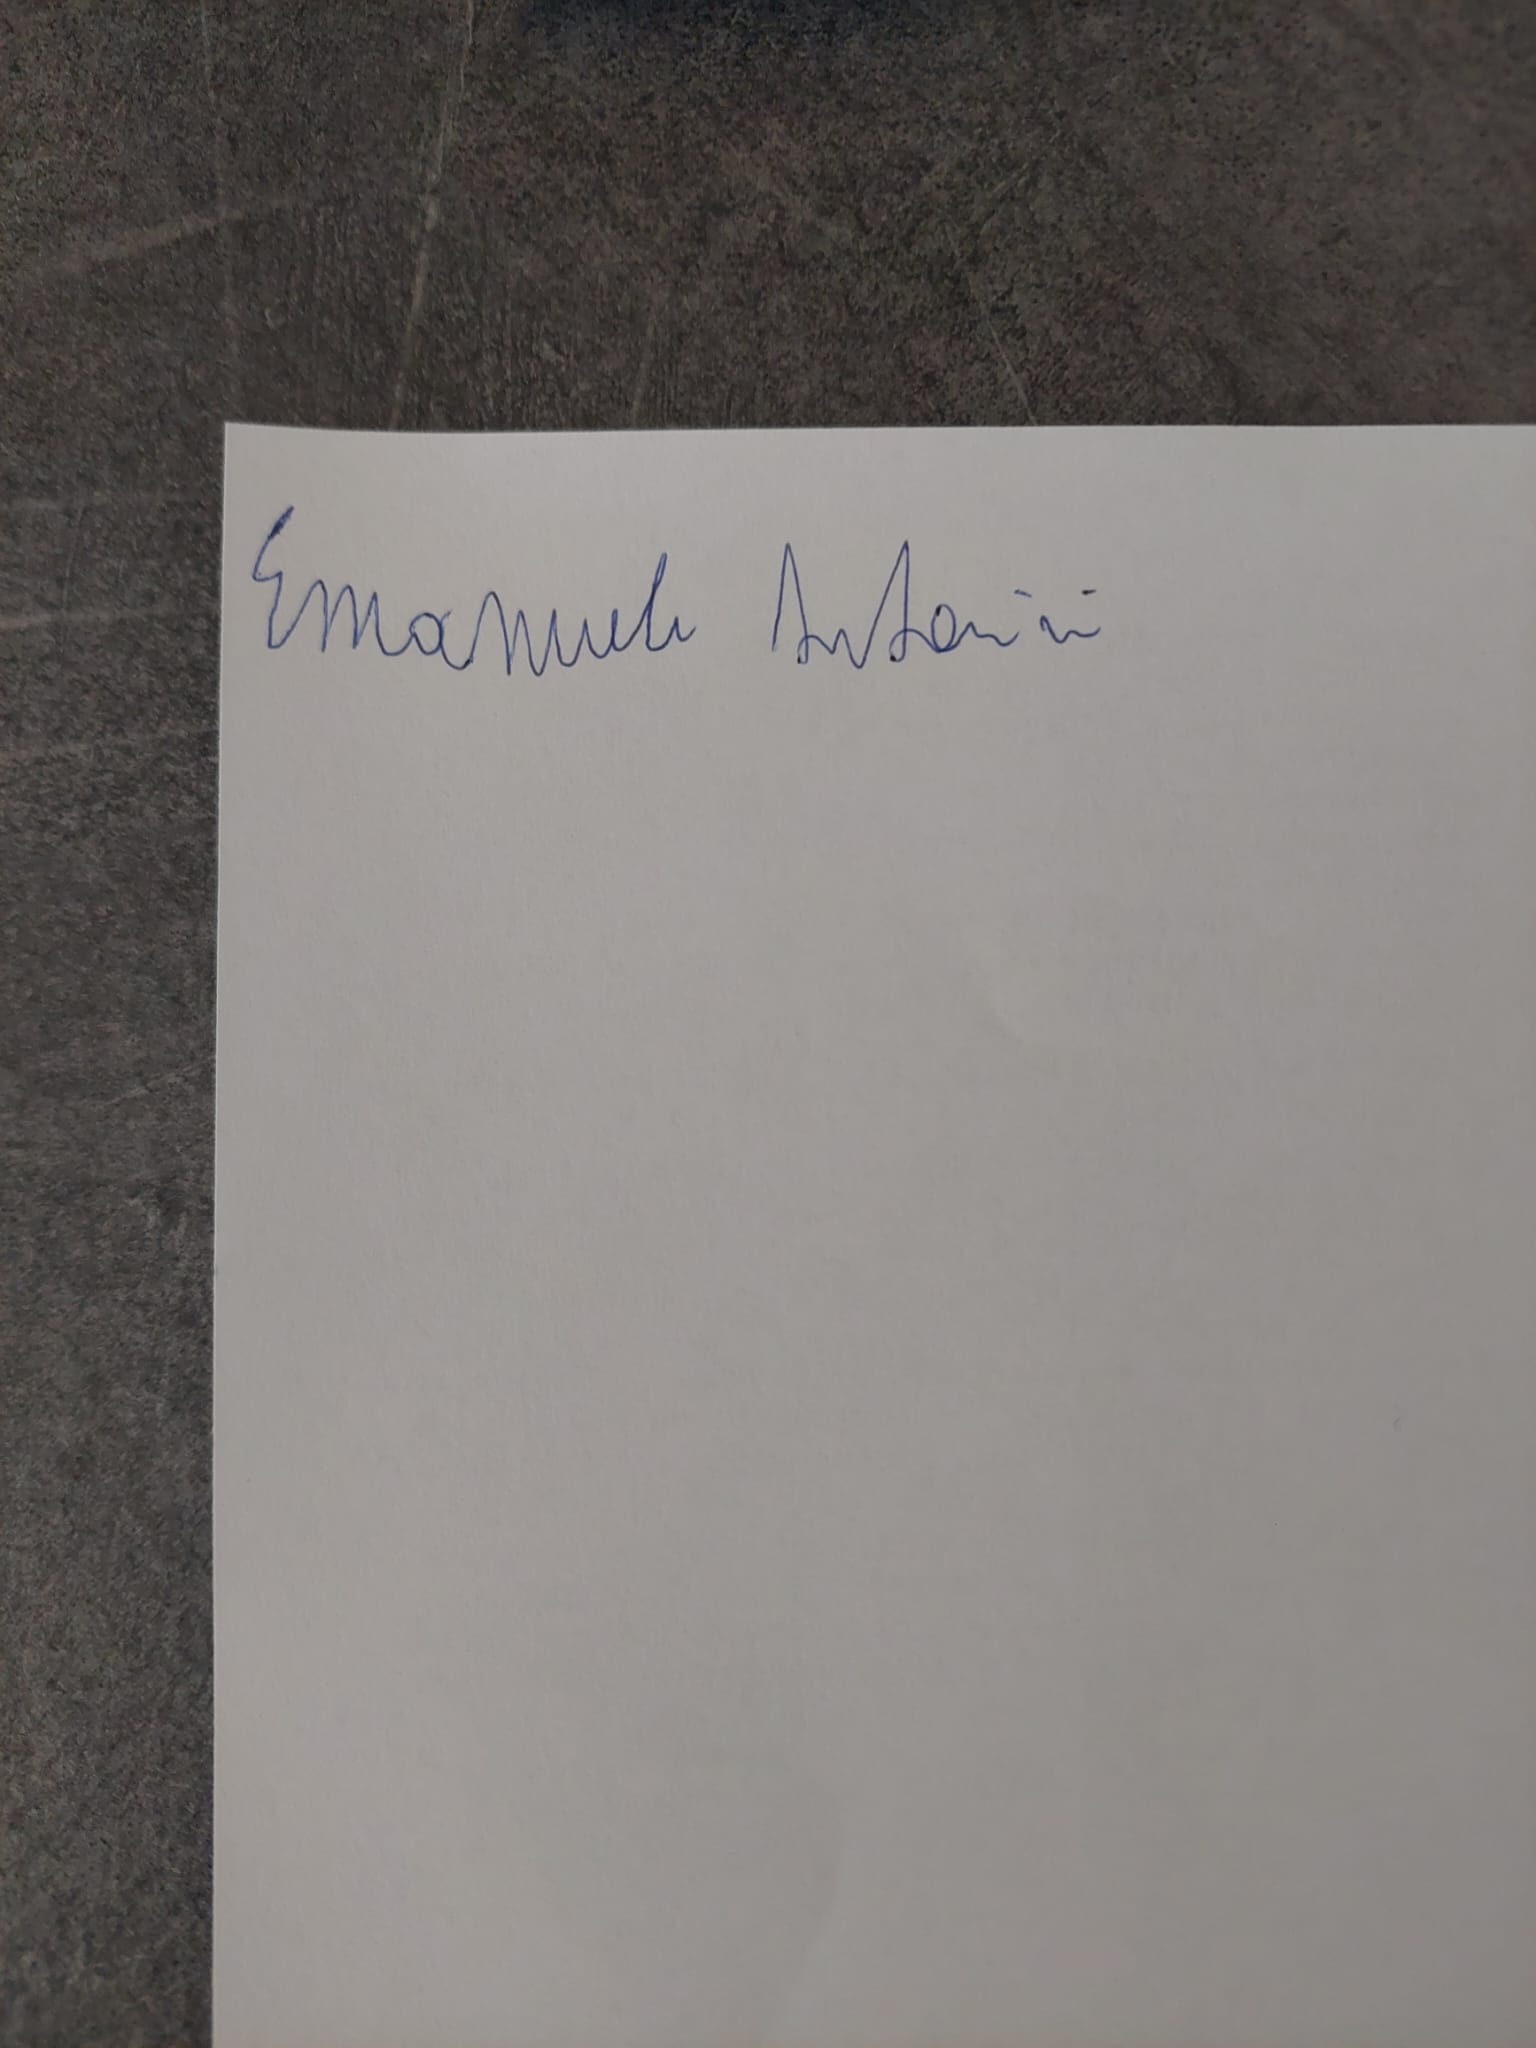 Emanuele Antonini